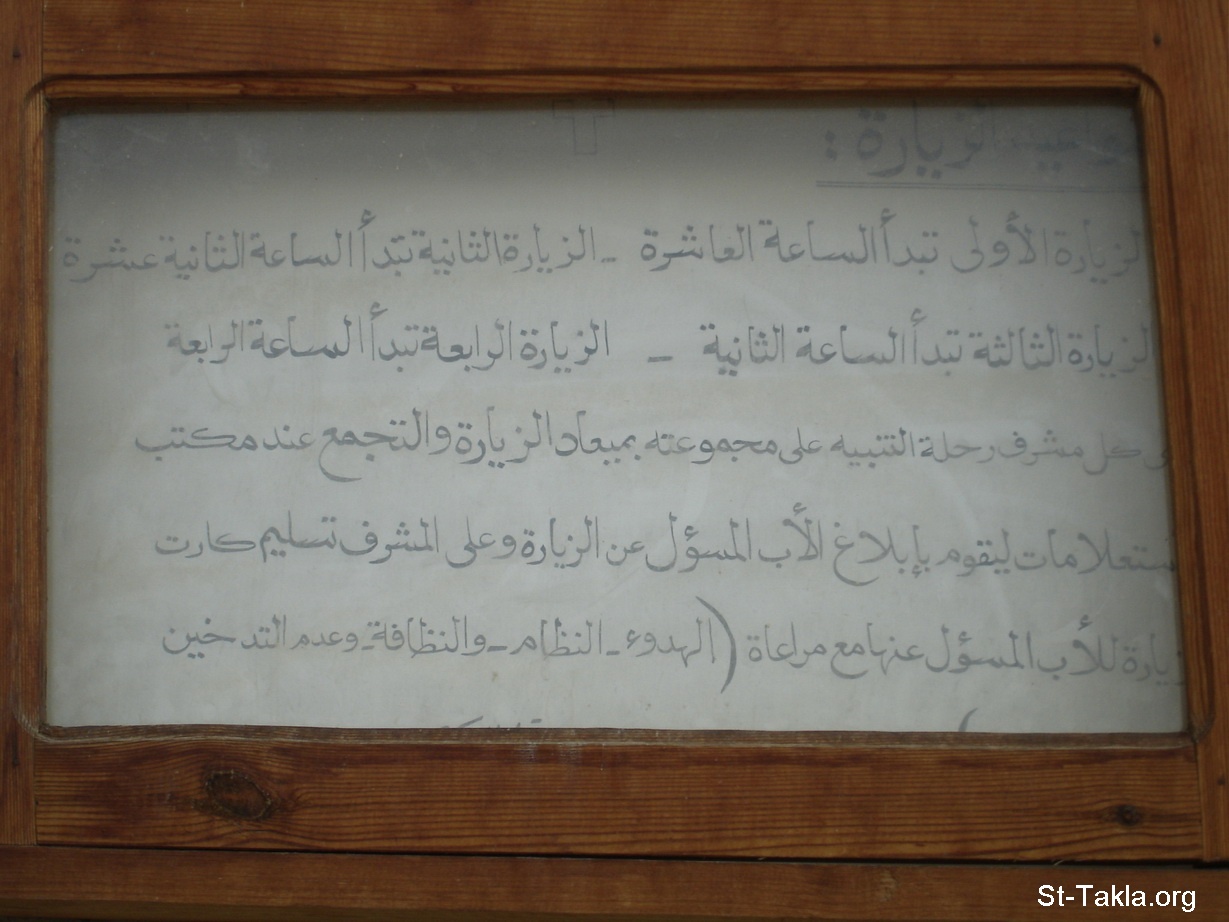 مواعيد الزيارة :
الزيارة الأولى تبدأ الساعة العاشرة - الزيارة الثانية تبدأ الساعة الثانية عشرة
الزيارة الثالثة تبدأ الساعة الثانية - الزيارة الرابعة تبدأ الساعة الرابعة
كل مشرف رحلة التنبيه على مجموعته بميعاد الزيارة والتجمع عند مكتب
ستعلامات ليقوم بإبلاغ الأب المسؤل عن الزيارة وعلى المشرف تسليم كارت
زيارة للأب المسؤل عنها مع مراعاة (الهدوء - النظام - والنظافة - وعدم التدخين
St-Takla.org